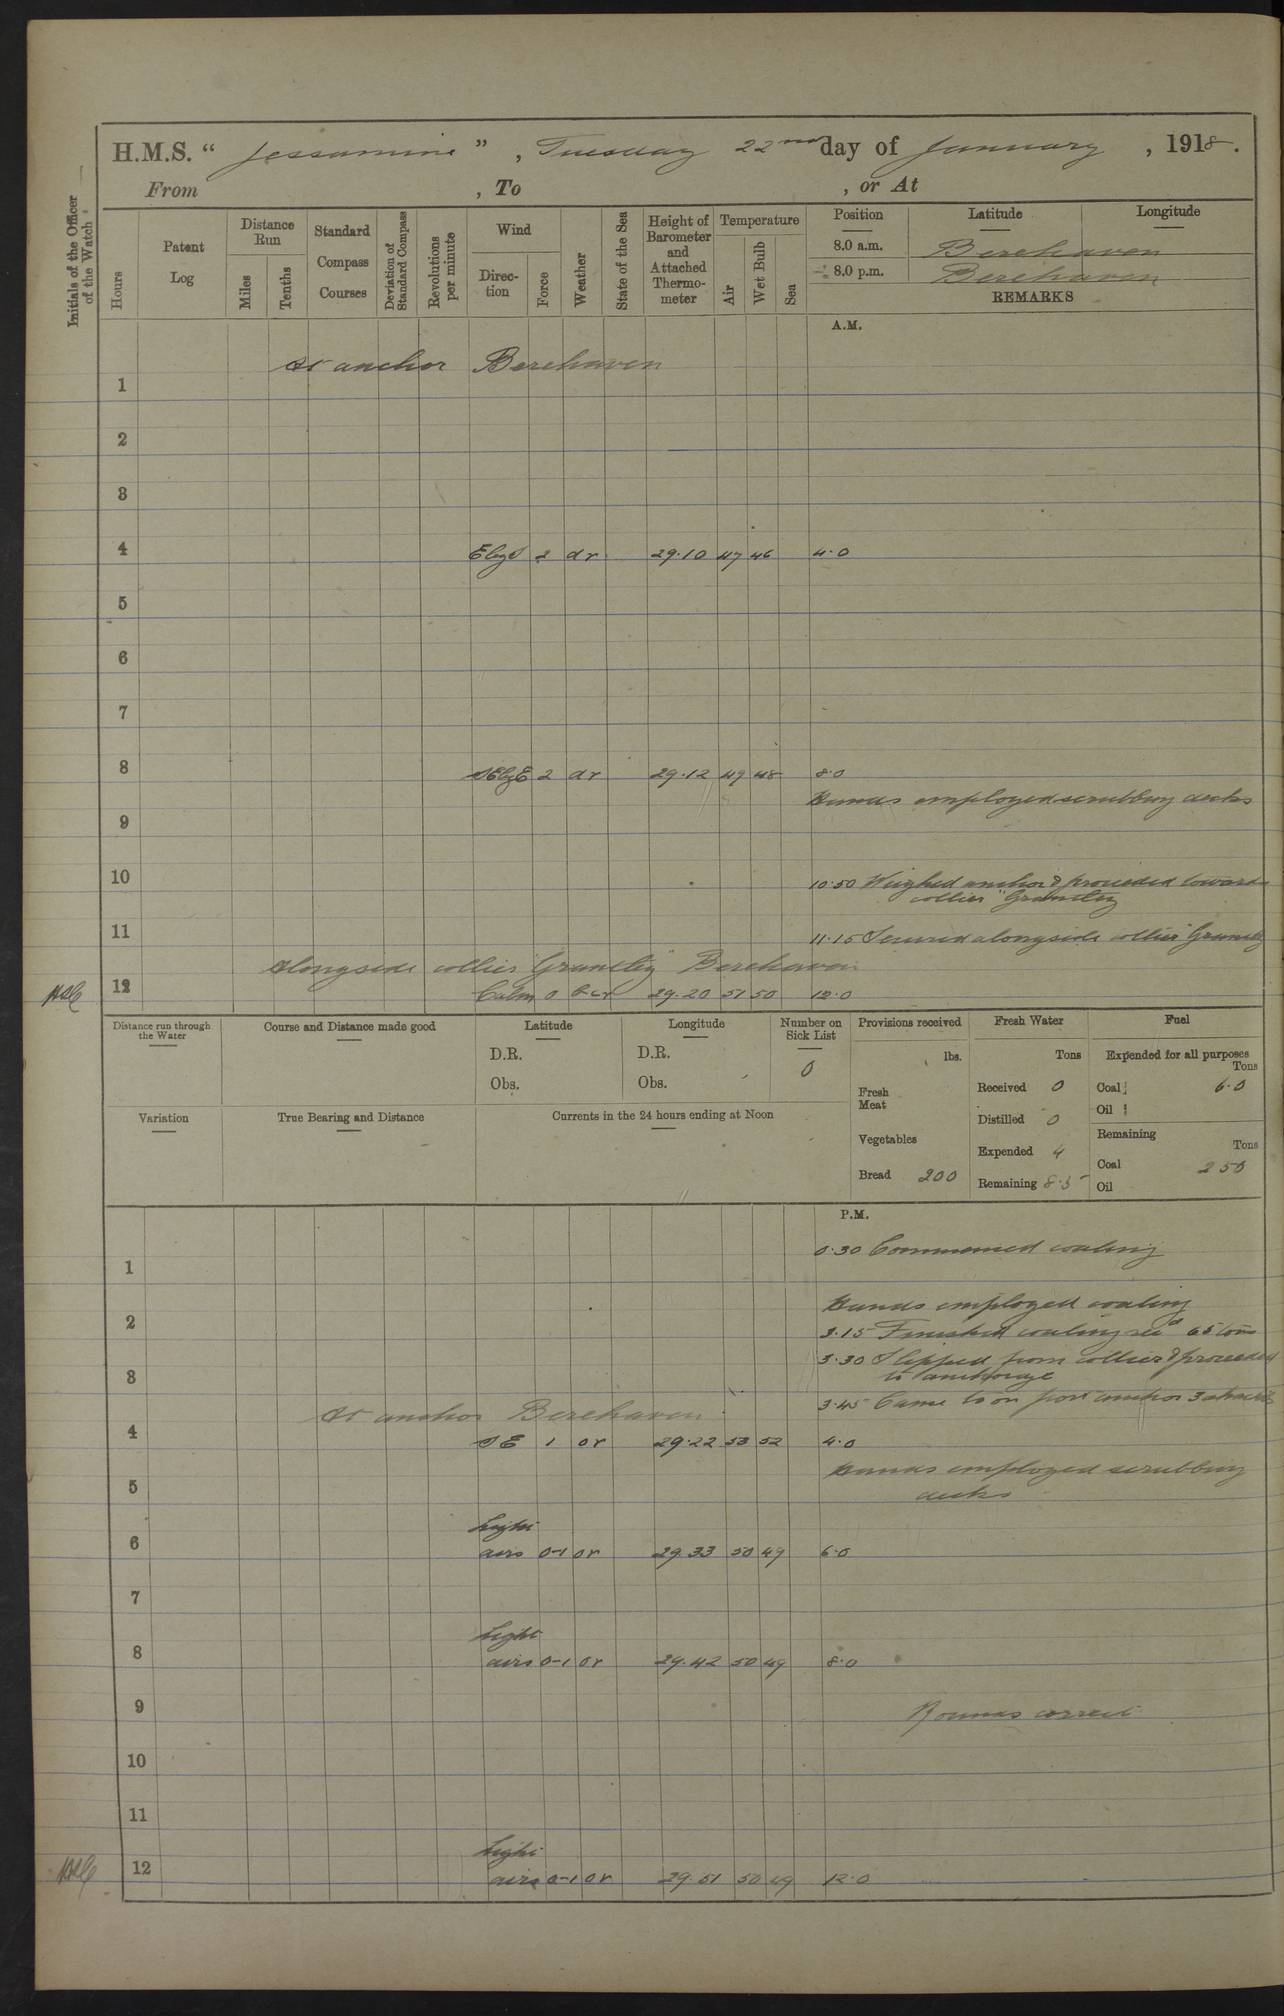 H.M.S. “ Jessamine ” , Tuesday 22nd day of January , 1918.
From , To , or At
Initials of the Officer of the Watch
Hours
Patent Log
Distance Run
Miles
Tenths
Standard Compass Courses
Deviation of Standard Compass
Revolutions per minute
Wind
Direc-tion
Force
Weather
State of the Sea
Height of Barometer and Attached Thermo-meter
Temperature
Air
Wet Bulb
Sea
Position Latitude Longitude
8.0 a.m. Berehaven
8.0 p.m. Berehaven
REMARKS
A.M.
At anchor Berehaven
1
2
3
4 EbyS 2 dr 29.10 47 46 4.0
5
6
7
8 SEbyE 2 dr 29.12 49 48 8.0
Hands employed scrubbing decks
9
10 10.50 Weighed anchor & proceeded towards
collier "Grantley
11 11.15 Secured alongside collier "Grantley
Alongside collier "Grantley" Berehaven
12 Calm 0 bcr 29.20 51 50 12.0
Distance run through the Water
Course and Distance made good
Latitude
D.R.
Obs.
Longitude
D.R.
Obs.
Number on Sick List
0
Provisions received
lbs.
Fresh Meat
Vegetables
Bread 200
Fresh Water
Tons
Received 0
Distilled 0
Expended 4
Remaining 85
Fuel
Expended for all purposes
Tons
Coal 6.0
Oil
Remaining
Tons
Coal 250
Oil
Variation
True Bearing and Distance
Currents in the 24 hours ending at Noon
P.M.
0.30 Commenced coaling
1
Hands employed coaling
2 3.15 Finished coaling recd 65 tons
3.30 Slipped from collier & proceeded
3 to anchorage
3.45 Came to on port anchor 3 shackles
At anchor Berehaven
4 SE 1 or 29.22 53 52 4.0
Hands employed scrubbing
5 decks
Light
6 airs 0-1 or 29.33 50 49 6.0
7
Light
8 airs 0-1 or 29.42 50 49 8.0
9 Rounds correct
10
11
Light
12 airs 0-1 or 29.51 50 49 12.0